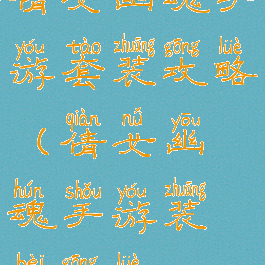 倩女幽魂手
yóu tào zhuāng gōng lüè
游套装攻略
qiàn nǚ yōu
（倩女幽
hún shǒu yóu zhuāng
魂手游装
bèi gōng lüè